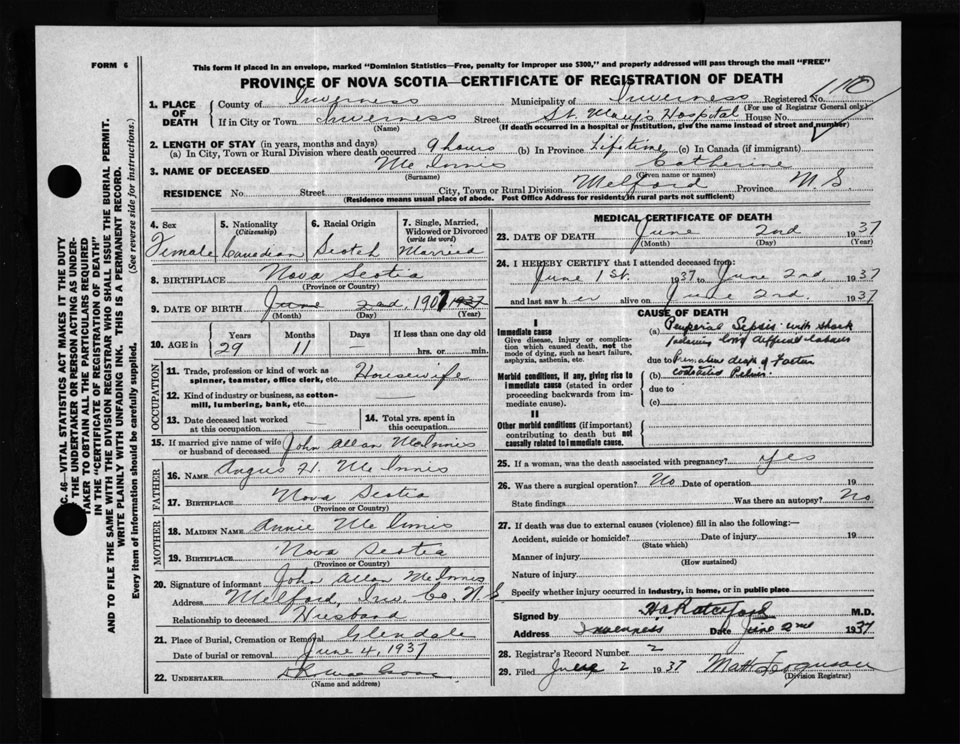 FORM 6
This form if placed in an envelope, marked "Dominion Statistics—Free, penalty for improper use $300," and properly addressed will pass through the mail "FREE"
PROVINCE OF NOVA SCOTIA—CERTIFICATE OF REGISTRATION OF DEATH
1. PLACE OF DEATH
County of Inverness Municipality of Inverness Registered No. 110
(For use of Registrar General only)
If in City or Town Inverness Street St. Mary's Hospital House No.
(Name) (If death occurred in a hospital or institution, give the name instead of street and number)
2. LENGTH OF STAY (in years, months and days)
(a) In City, Town or Rural Division where death occurred 9 hours (b) In Province Lifetime (c) In Canada (if immigrant)
3. NAME OF DECEASED McInnis Catherine
(Surname) (Given name or names)
RESIDENCE No. Street City, Town or Rural Division Melford Province N.S.
(Residence means usual place of abode. Post Office Address for residents in rural parts not sufficient)
4. Sex Female
5. Nationality (Citizenship) Canadian
6. Racial Origin Scotch
7. Single, Married, Widowed or Divorced (write the word) Married
8. BIRTHPLACE Nova Scotia
(Province or Country)
9. DATE OF BIRTH June 2nd, 1907 1937
(Month) (Day) (Year)
10. AGE in Years 29 Months 11 Days If less than one day old hrs. or min.
OCCUPATION
11. Trade, profession or kind of work as spinner, teamster, office clerk, etc. Housewife
12. Kind of industry or business, as cotton-mill, lumbering, bank, etc.
13. Date deceased last worked at this occupation
14. Total yrs. spent in this occupation
15. If married give name of wife or husband of deceased John Allan McInnis
FATHER
16. NAME Angus H. McInnis
17. BIRTHPLACE Nova Scotia
(Province or Country)
MOTHER
18. MAIDEN NAME Annie McInnis
19. BIRTHPLACE Nova Scotia
(Province or Country)
20. Signature of informant John Allan McInnis
Address Melford, Inv. Co. N.S
Relationship to deceased Husband
21. Place of Burial, Cremation or Removal Glendale
Date of burial or removal June 4, 1937
22. UNDERTAKER
(Name and address)
MEDICAL CERTIFICATE OF DEATH
23. DATE OF DEATH June 2nd 1937
(Month) (Day) (Year)
24. I HEREBY CERTIFY that I attended deceased from:
June 1st. 1937 to June 2nd, 1937
and last saw h er alive on June 2nd. 1937
CAUSE OF DEATH
I
Immediate cause
Give disease, injury or complication which caused death, not the mode of dying, such as heart failure, asphyxia, asthenia, etc.
(a) Puerperal Sepsis with shock
following long difficult labour
due to
Morbid conditions, if any, giving rise to immediate cause (stated in order proceeding backwards from immediate cause).
(b) death of
Pelvis.
due to
(c)
II
Other morbid conditions (if important) contributing to death but not causally related to immediate cause.
25. If a woman, was the death associated with pregnancy? Yes
26. Was there a surgical operation? No Date of operation 19
State findings Was there an autopsy? No
27. If death was due to external causes (violence) fill in also the following:—
Accident, suicide or homicide? Date of injury 19
(State which)
Manner of injury
(How sustained)
Nature of injury
Specify whether injury occurred in industry, in home, or in public place
Signed by M.D.
Address Inverness Date June 2nd 1937
28. Registrar's Record Number 2
29. Filed 2 1937 Matt Ferguson
(Division Registrar)
C. 46—VITAL STATISTICS ACT MAKES IT THE DUTY
THE UNDERTAKER OR PERSON ACTING AS UNDER-
TAKER TO OBTAIN ALL THE PARTICULARS REQUIRED
IN THE "CERTIFICATE OF REGISTRATION OF DEATH"
AND TO FILE THE SAME WITH THE DIVISION REGISTRAR WHO SHALL ISSUE THE BURIAL PERMIT.
WRITE PLAINLY WITH UNFADING INK. THIS IS A PERMANENT RECORD.
Every item of information should be carefully supplied. (See reverse side for instructions.)